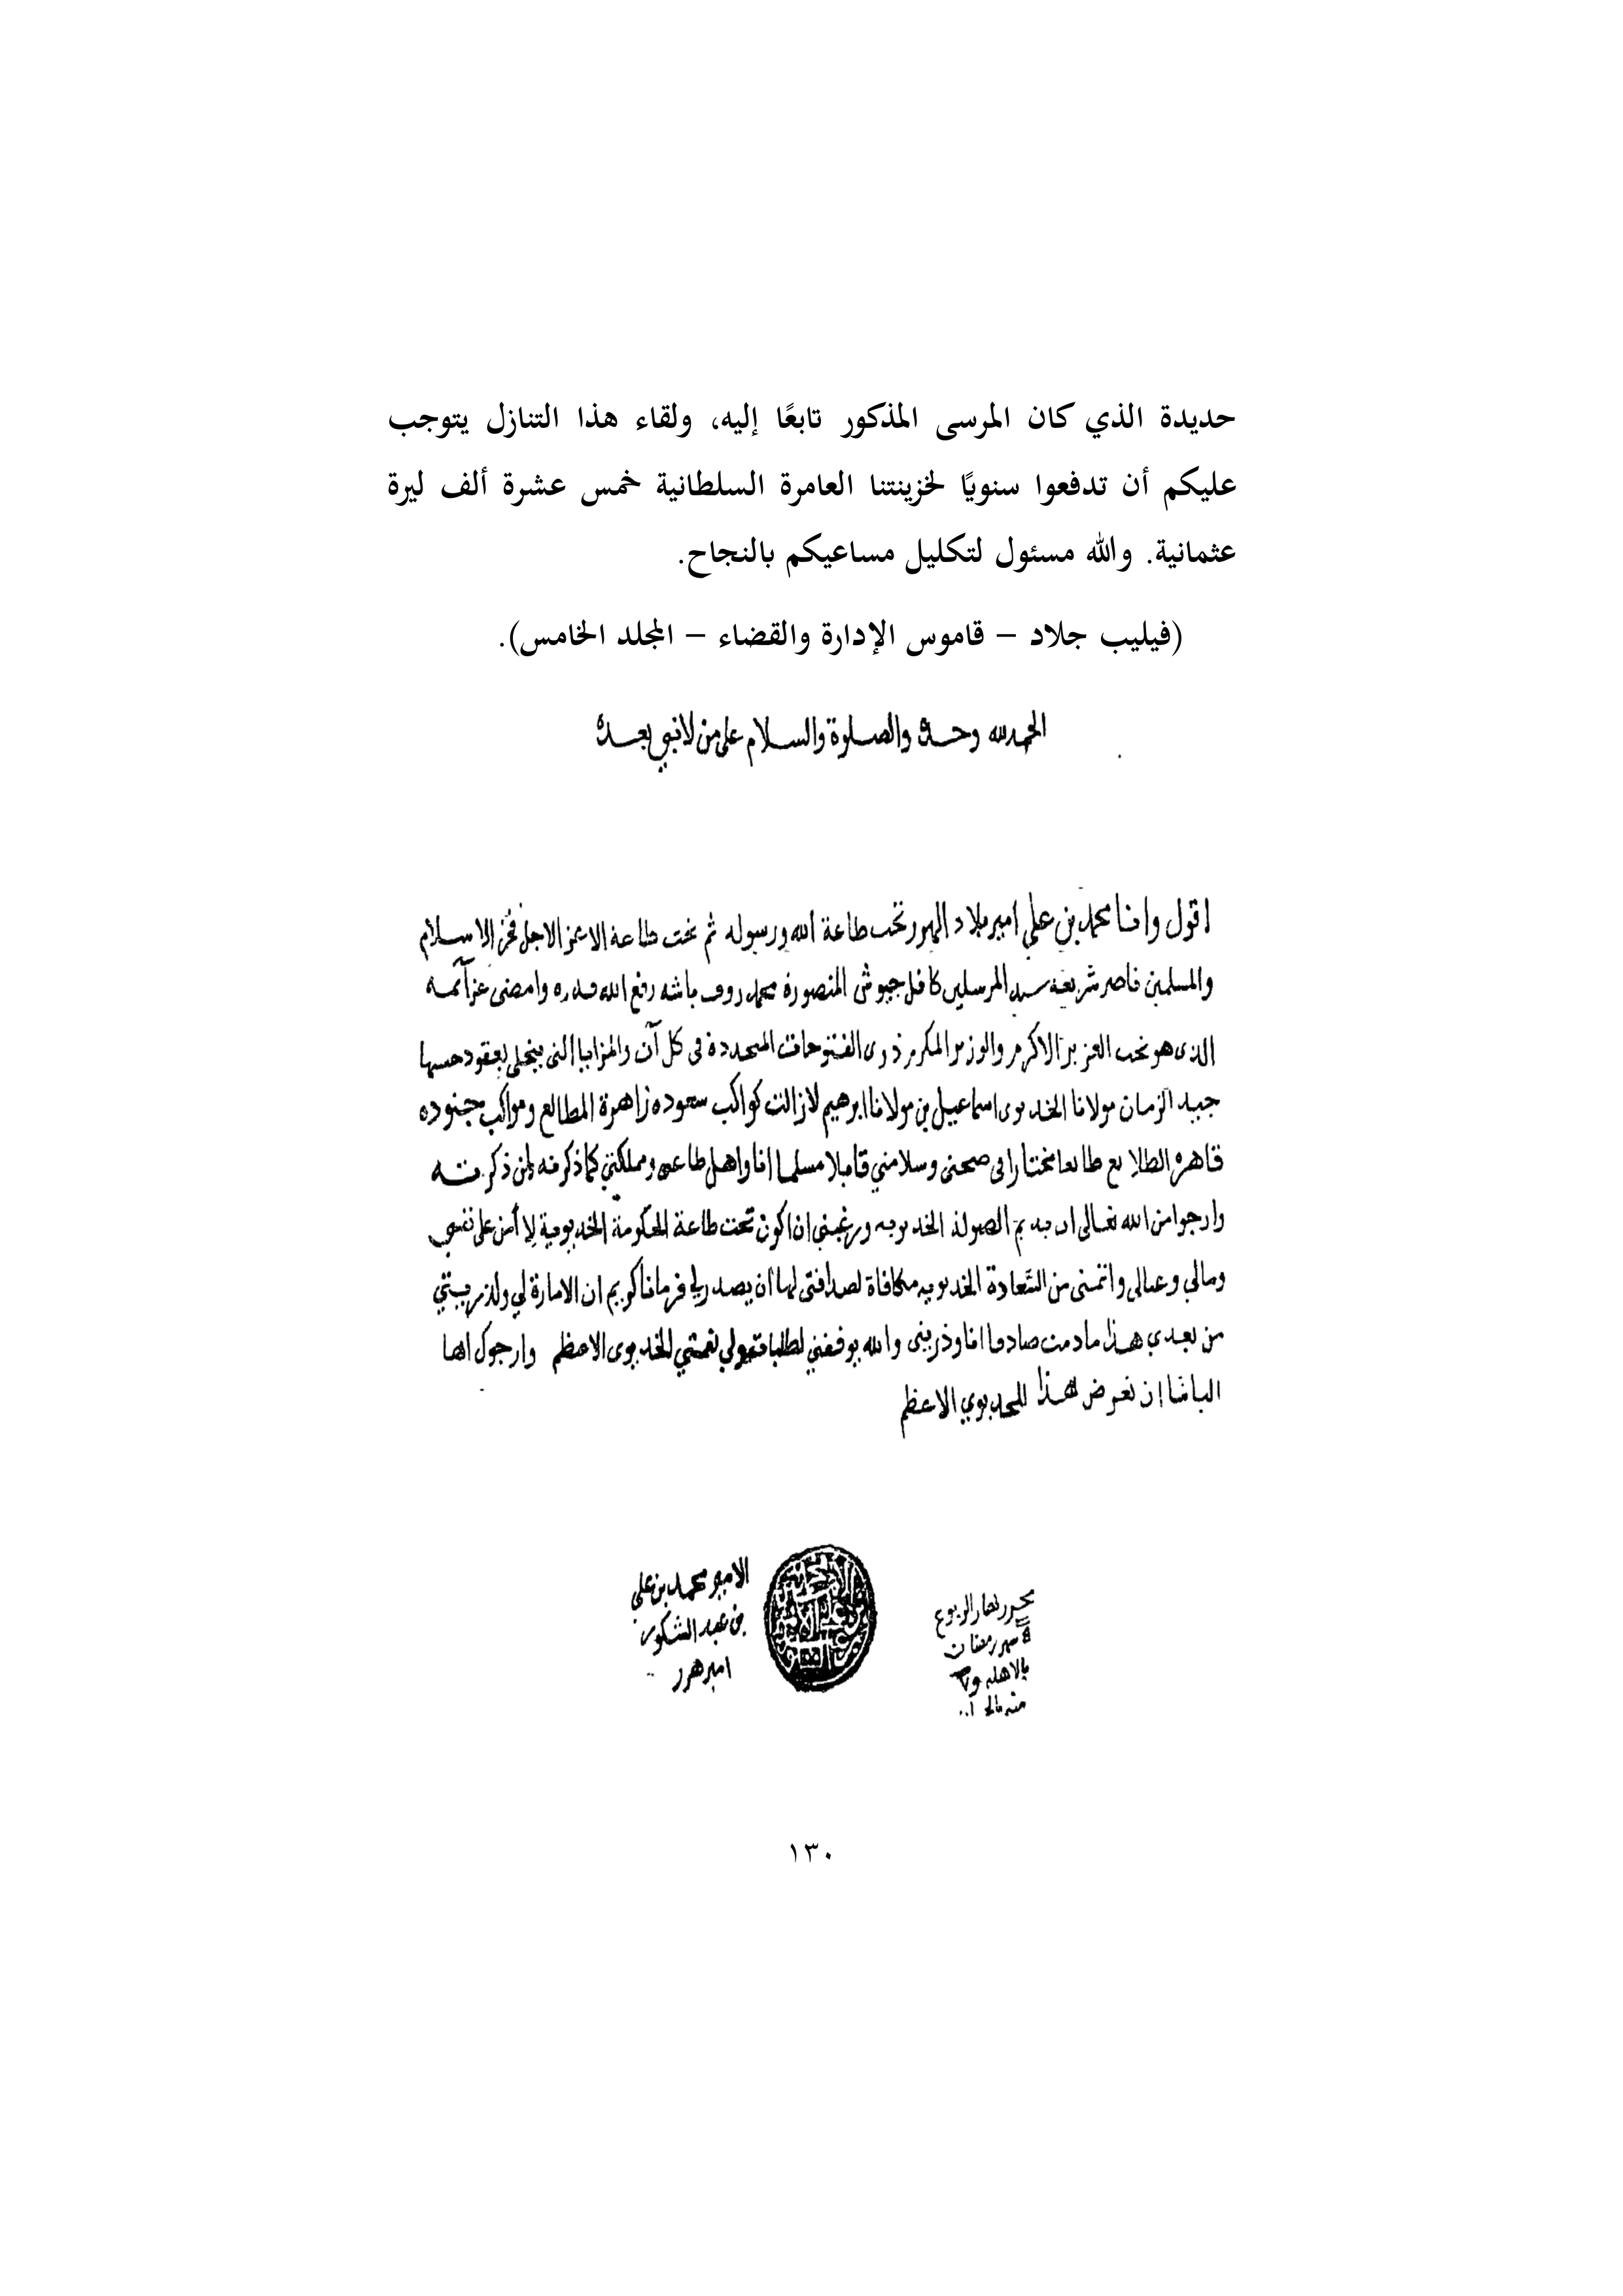 حديدة الذي كان المرسى المذكور تابعًا إليه، ولقاء هذا التنازل يتوجب
عليكم أن تدفعوا سنويًا لخزينتنا العامرة السلطانية خمس عشرة ألف ليرة
عثمانية. والله مسئول لتكليل مساعيكم بالنجاح.
(فيليب جلاد – قاموس الإدارة والقضاء – المجلد الخامس).
الحمدلله وحده والصلوة والسلام على من لا نبي بعده
اقول وانا محمد بن علي امير بلاد الهرر تحت طاعة الله ورسوله ثم تحت طاعة الاعز الاجل فخر الاسلام
والمسلمين ناصر شريعة سيد المرسلين كافل جيوش المنصورة محمد روف باشه رفع الله قدره وامضى عزآئمه
الذى هو تحت العزيز الاكرم والوزير المكرم ذوى الفتوحات المتجددة فى كل آن والمزايا التى يتحلى بعقود حسنها
جيد الزمان مولانا الخديوى اسماعيل بن مولانا ابرهيم لازالت كواكب سعوده زاهرة المطالع ومواكب جنوده
قاهرة الطلايع طايعا مختارا فى صحتى وسلامتي قايلا مسلما انا واهل طاعتى ومملكتي كما ذكرته لمن ذكرته
وارجوا من الله تعالى ان يديم الصولة الخديويه ورغبني ان اكون تحت طاعة الحكومة الخديوية لا أمن على نفسي
ومالي وعيالى واتمنى من السعادة الخديويه مكافاة لصداقتى لها ان يصدر لي فرمانا كريم ان الامارة لي ولذريتي
من بعدي هذا مادمت صادقا انا وذريتى والله يوفقني لطلبات ولي نعمتي الخديوى الاعظم وارجوك ايها
الباشا ان تعرض هذا للخديوي الاعظم
الامير محمد بن على
بن عبد الشكور
امير هرر
محرر نهار الربوع
شهر رمضان
١٣٠